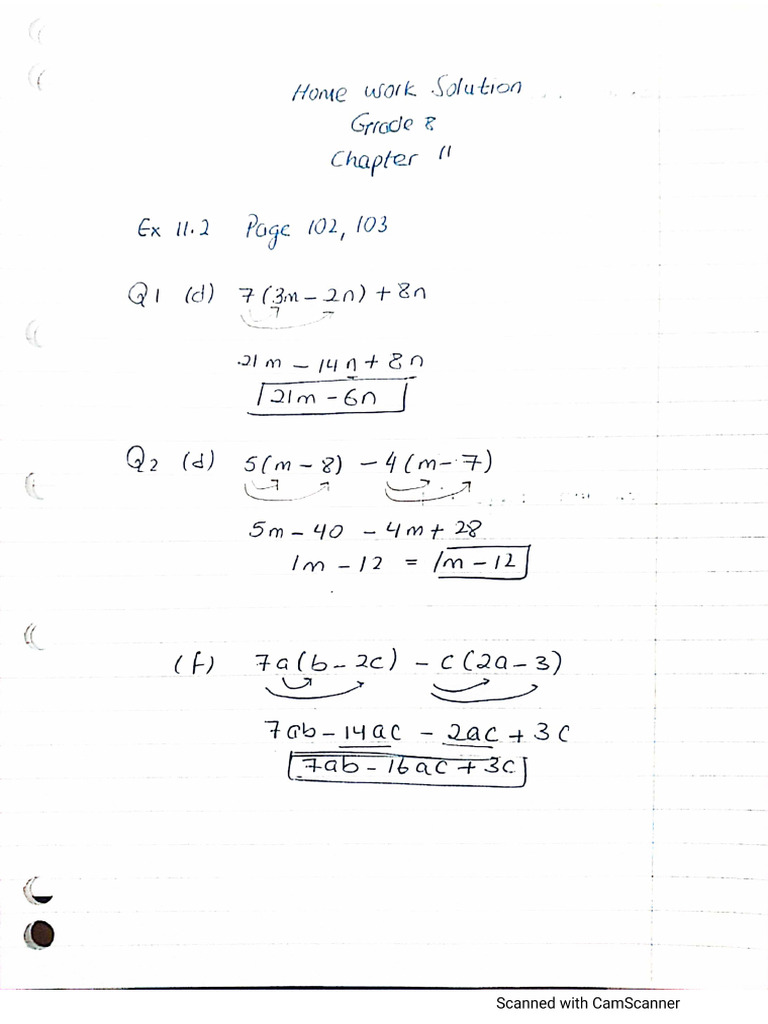 Home work Solution
Grade 8
Chapter 11
Ex 11.2 Page 102, 103
Q1 (d) 7(3m - 2n) + 8n
21m - 14n + 8n
21m - 6n
Q2 (d) 5(m - 8) - 4(m - 7)
5m - 40 - 4m + 28
1m - 12 = 1m - 12
(f) 7a(b - 2c) - c(2a - 3)
7ab - 14ac - 2ac + 3c
7ab - 16ac + 3c
Scanned with CamScanner